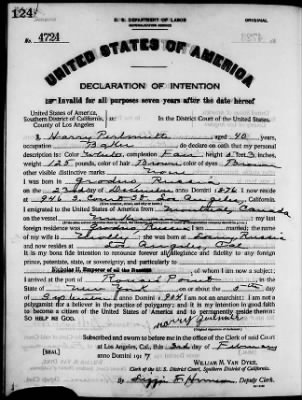 124
U. S. DEPARTMENT OF LABOR
NATURALIZATION SERVICE
ORIGINAL
No. 4724
UNITED STATES OF AMERICA
DECLARATION OF INTENTION
Invalid for all purposes seven years after the date hereof
United States of America,
Southern District of California,
County of Los Angeles
In the District Court of the United States.
I, Harry aged 40 years,
occupation Baker, do declare on oath that my personal
description is: Color White, complexion Fair, height 5 feet inches,
weight 125 pounds, color of hair Brown, color of eyes Brown
other visible distinctive marks None
I was born in Grodno, Russia
on the 23rd day of December, anno Domini 1876; I now reside
at 946 S. Court St., Los Angeles, California.
I emigrated to the United States of America from Montreal, Canada
on the vessel; my last
foreign residence was Grodno, Russia; I am married; the name
of my wife is; she was born in Russia
and now resides at Los Angeles, Cal
It is my bona fide intention to renounce forever all allegiance and fidelity to any foreign
prince, potentate, state, or sovereignty, and particularly to
Nicholas II, Emperor of all the Russias, of whom I am now a subject;
I arrived at the port of Rouses Point, in the
State of New York, on or about the 5th day
of September, anno Domini 1904; I am not an anarchist; I am not a
polygamist nor a believer in the practice of polygamy; and it is my intention in good faith
to become a citizen of the United States of America and to permanently reside therein:
SO HELP ME GOD.
Harry
(Original signature of declarant)
Subscribed and sworn to before me in the office of the Clerk of said Court
at Los Angeles, Cal., this 3rd day of February
[SEAL] anno Domini 1917
WILLIAM M. VAN DYKE,
Clerk of the U. S. District Court, Southern District of California.
By Deputy Clerk.